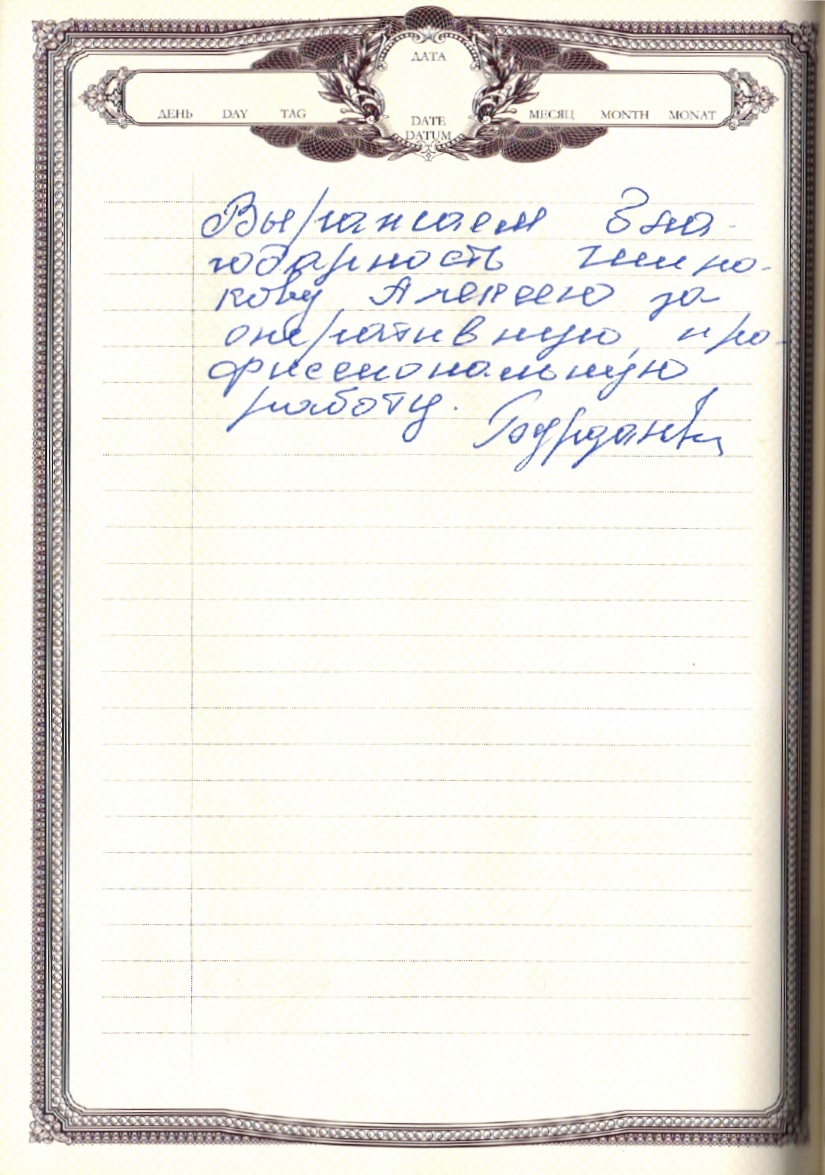 ДАТА
ДЕНЬ DAY TAG
DATE
МЕСЯЦ MONTH MONAT
DATUM
Выражаем бла-
годарность
кову Алексею за
оперативную, про-
фессиональную
работу.